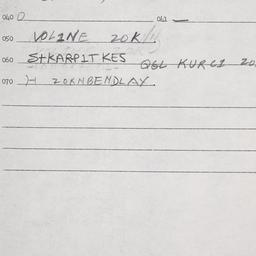 040 0 041 —
050 VOLINE 20K
060 StKARPITKES QGL KURCI 20
070 H ZOKNBENDLAY.